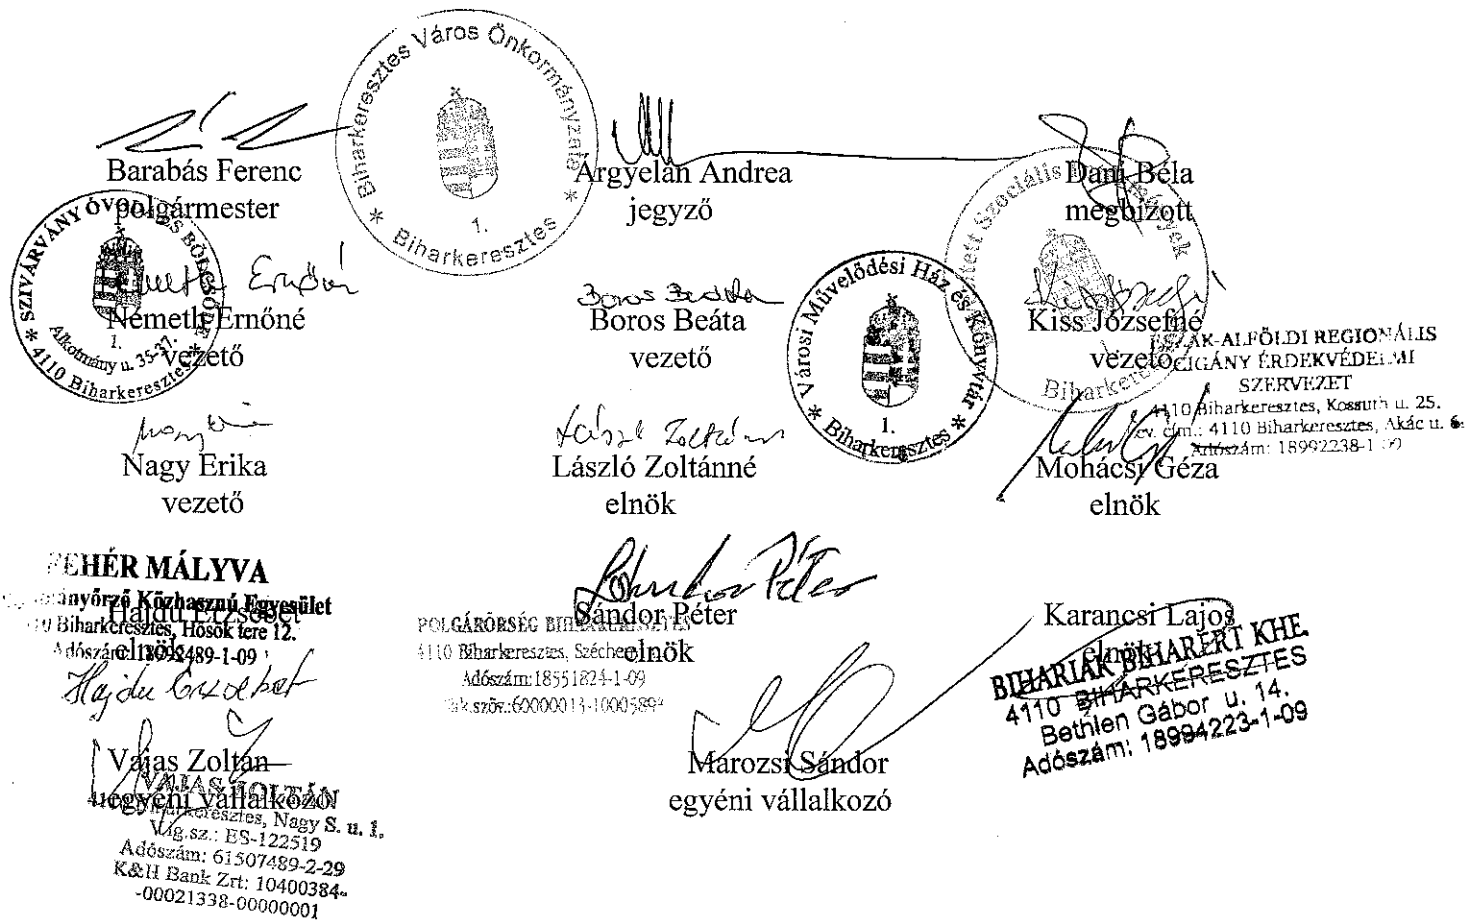 Biharkeresztes Város Önkormányzata * Biharkeresztes *
1.
Barabás Ferenc
polgármester
Argyelán Andrea
jegyző
Dani Béla
megbízott
SZIVÁRVÁNY ÓVODA ÉS BÖLCSŐDE
Alkotmány u. 35-37.
1.
* 4110 Biharkeresztes *
Németh Ernőné
Németh Ernőné
vezető
Boros Beáta
Boros Beáta
vezető
Városi Művelődési Ház és Könyvtár
1.
* Biharkeresztes *
Szociális
Biharkeresztes
Kiss Józsefné
vezető
ÉSZAK-ALFÖLDI REGIONÁLIS
CIGÁNY ÉRDEKVÉDELMI
SZERVEZET
4110 Biharkeresztes, Kossuth u. 25.
Lev. cím.: 4110 Biharkeresztes, Akác u. 6.
Adószám: 18992238-1-09
Nagy Erika
vezető
László Zoltánné
László Zoltánné
elnök
Mohácsi Géza
elnök
FEHÉR MÁLYVA
Közhasznú Egyesület
4110 Biharkeresztes, Hősök tere 12.
Adószám: 18992489-1-09
Hajdu Erzsébet
elnök
Hajdu Erzsébet
Sándor Péter
Sándor Péter
elnök
POLGÁRŐRSÉG BIHARKERESZTES
4110 Biharkeresztes,
Adószám: 18551824-1-09
Karancsi Lajos
elnök
BIHARIAK BIHARÉRT KHE.
4110 BIHARKERESZTES
Bethlen Gábor u. 14.
Adószám: 18994223-1-09
Vajas Zoltán
egyéni vállalkozó
VAJAS ZOLTÁN
Biharkeresztes, Nagy S. u. 1.
Váig.sz.: ES-122519
Adószám: 61507489-2-29
K&H Bank Zrt: 10400384-
-00021338-00000001
Marozsi Sándor
egyéni vállalkozó